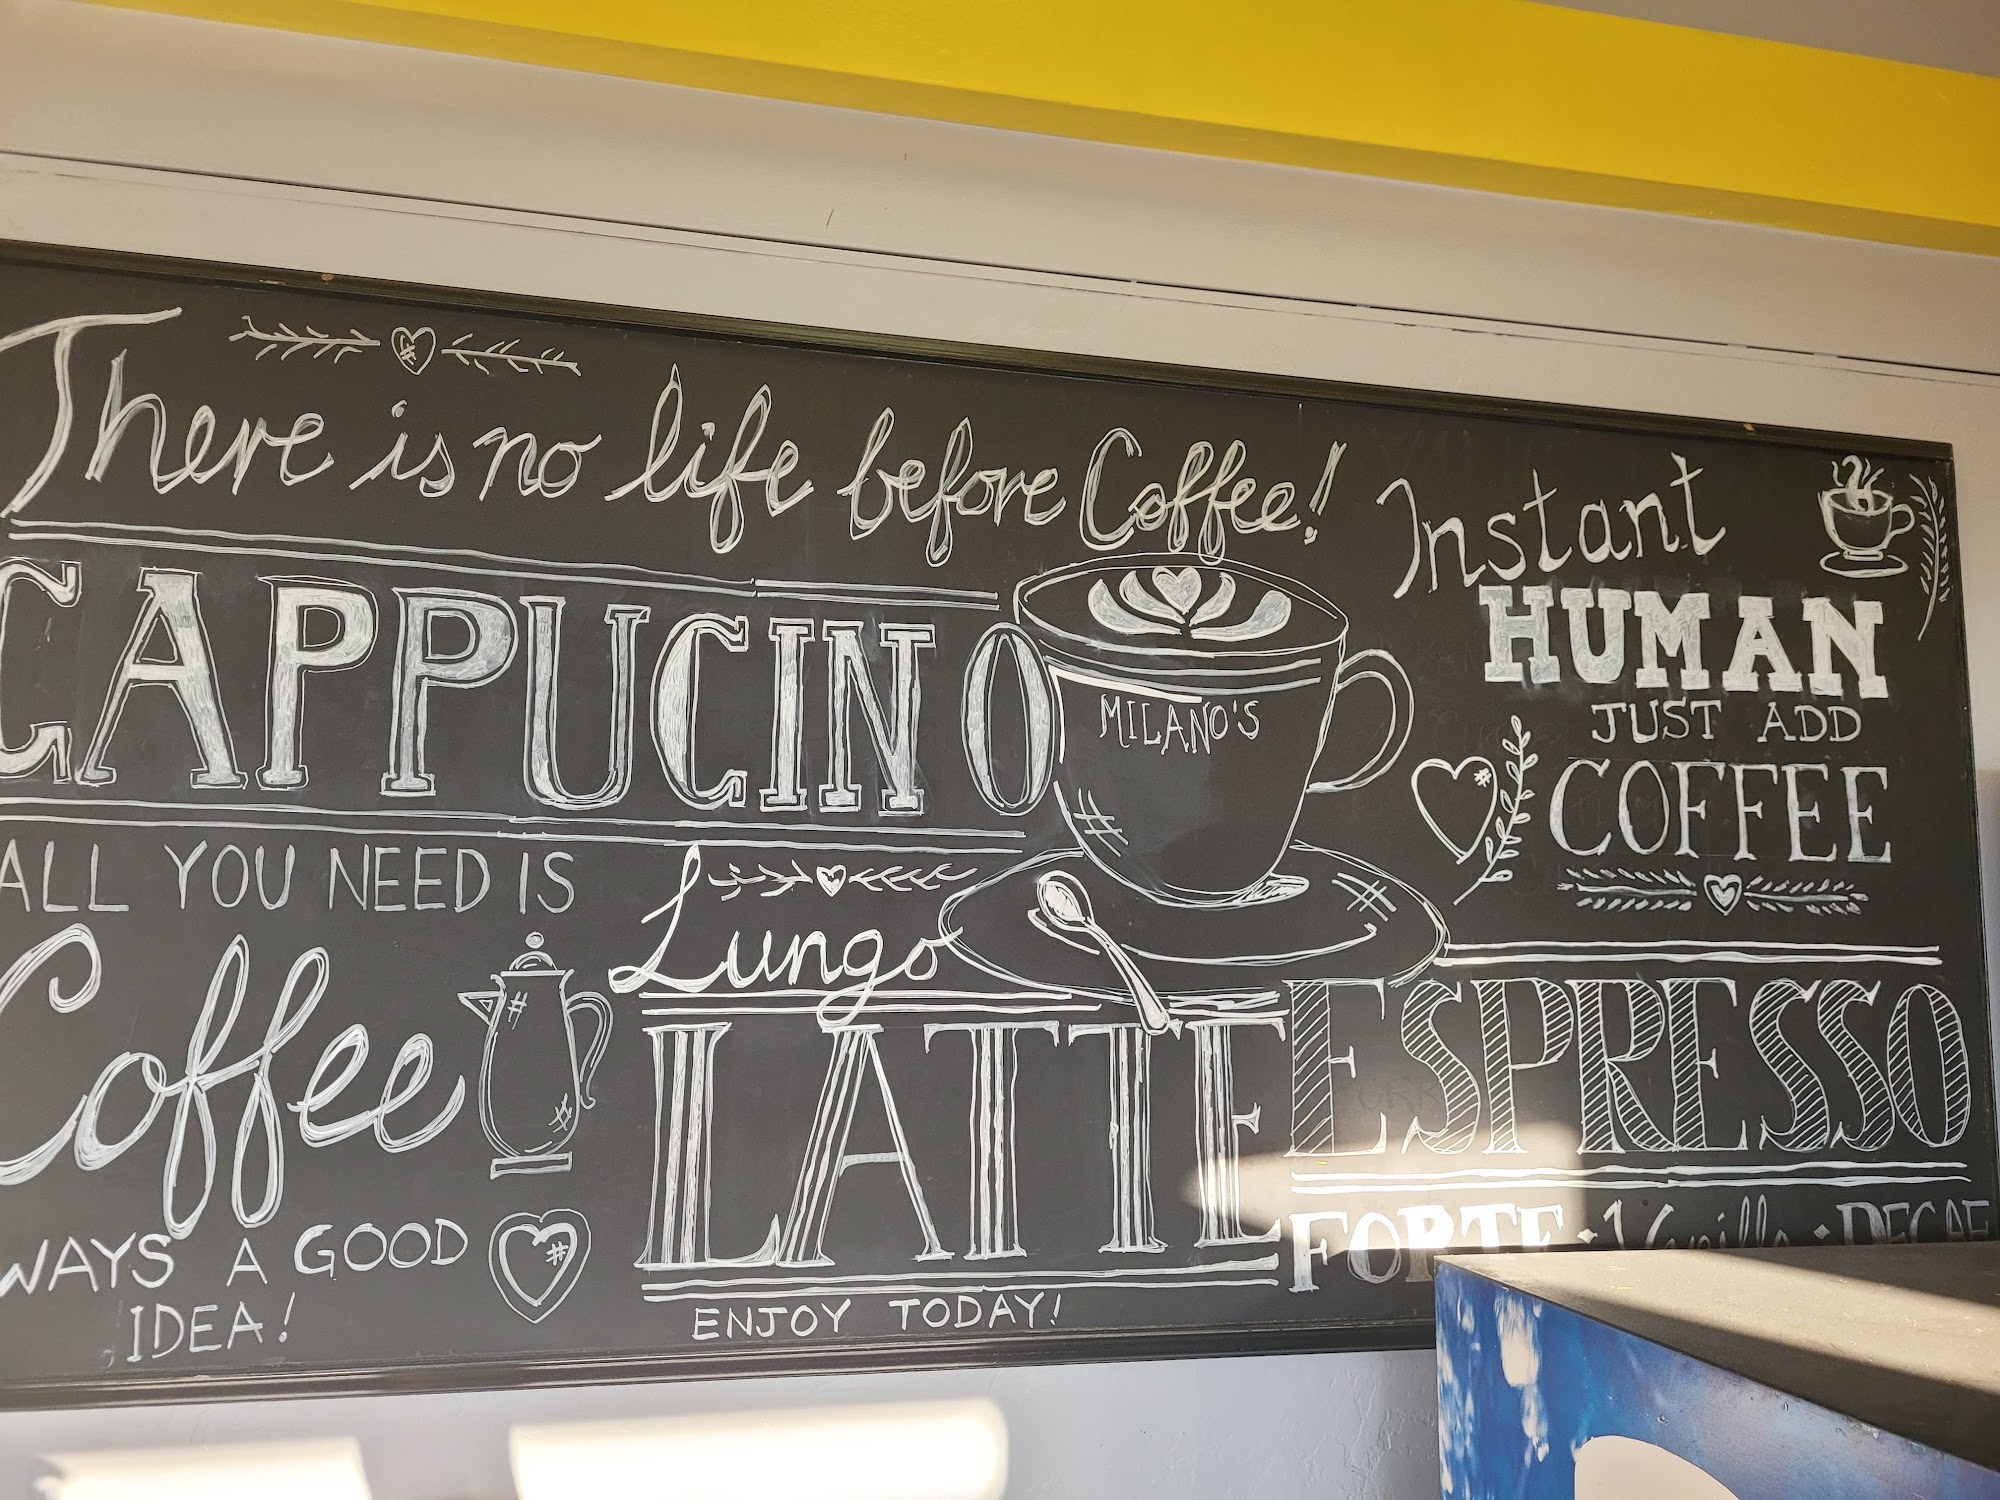 There is no life before Coffee!
CAPPUCINO
MILANO'S
Instant
HUMAN
JUST ADD
COFFEE
ALL YOU NEED IS
Coffee
WAYS A GOOD
IDEA!
Lungo
LATTE
ENJOY TODAY!
ESPRESSO
FORTE · Vanilla · DECAF